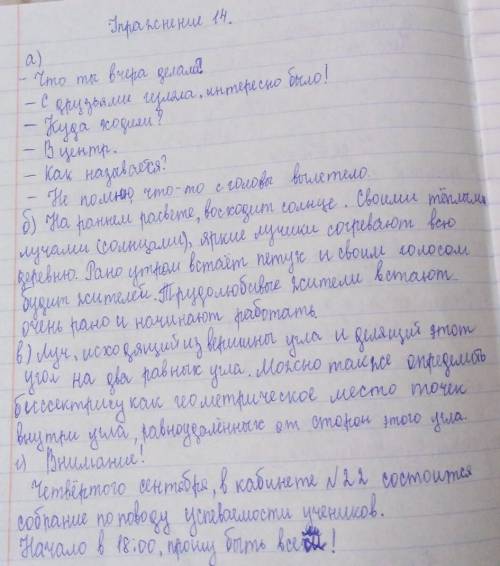 Упражнение 14.
а)
- Что ты вчера делала?
- С друзьями гуляла, интересно было!
- Куда ходили?
- В центр.
- Как называется?
- Не помню, что-то с головы вылетело.
б) На раннем расвете, восходит солнце. Своими тёплыми
лучами (солнцами), яркие лучики согревают всю
деревню. Рано утром встаёт петух и своим голосом
будит жителей. Трудолюбивые жители встают
очень рано и начинают работать.
в) Луч, исходящий из вершины угла и делящий этот
угол на два равных угла. Можно также определить
биссектрису как геометрическое место точек
внутри угла, равноудалённых от сторон этого угла.
г) Внимание!
Четвёртого сентября, в кабинете №22 состоится
собрание по поводу успеваемости учеников.
Начало в 18:00, прошу быть всех!